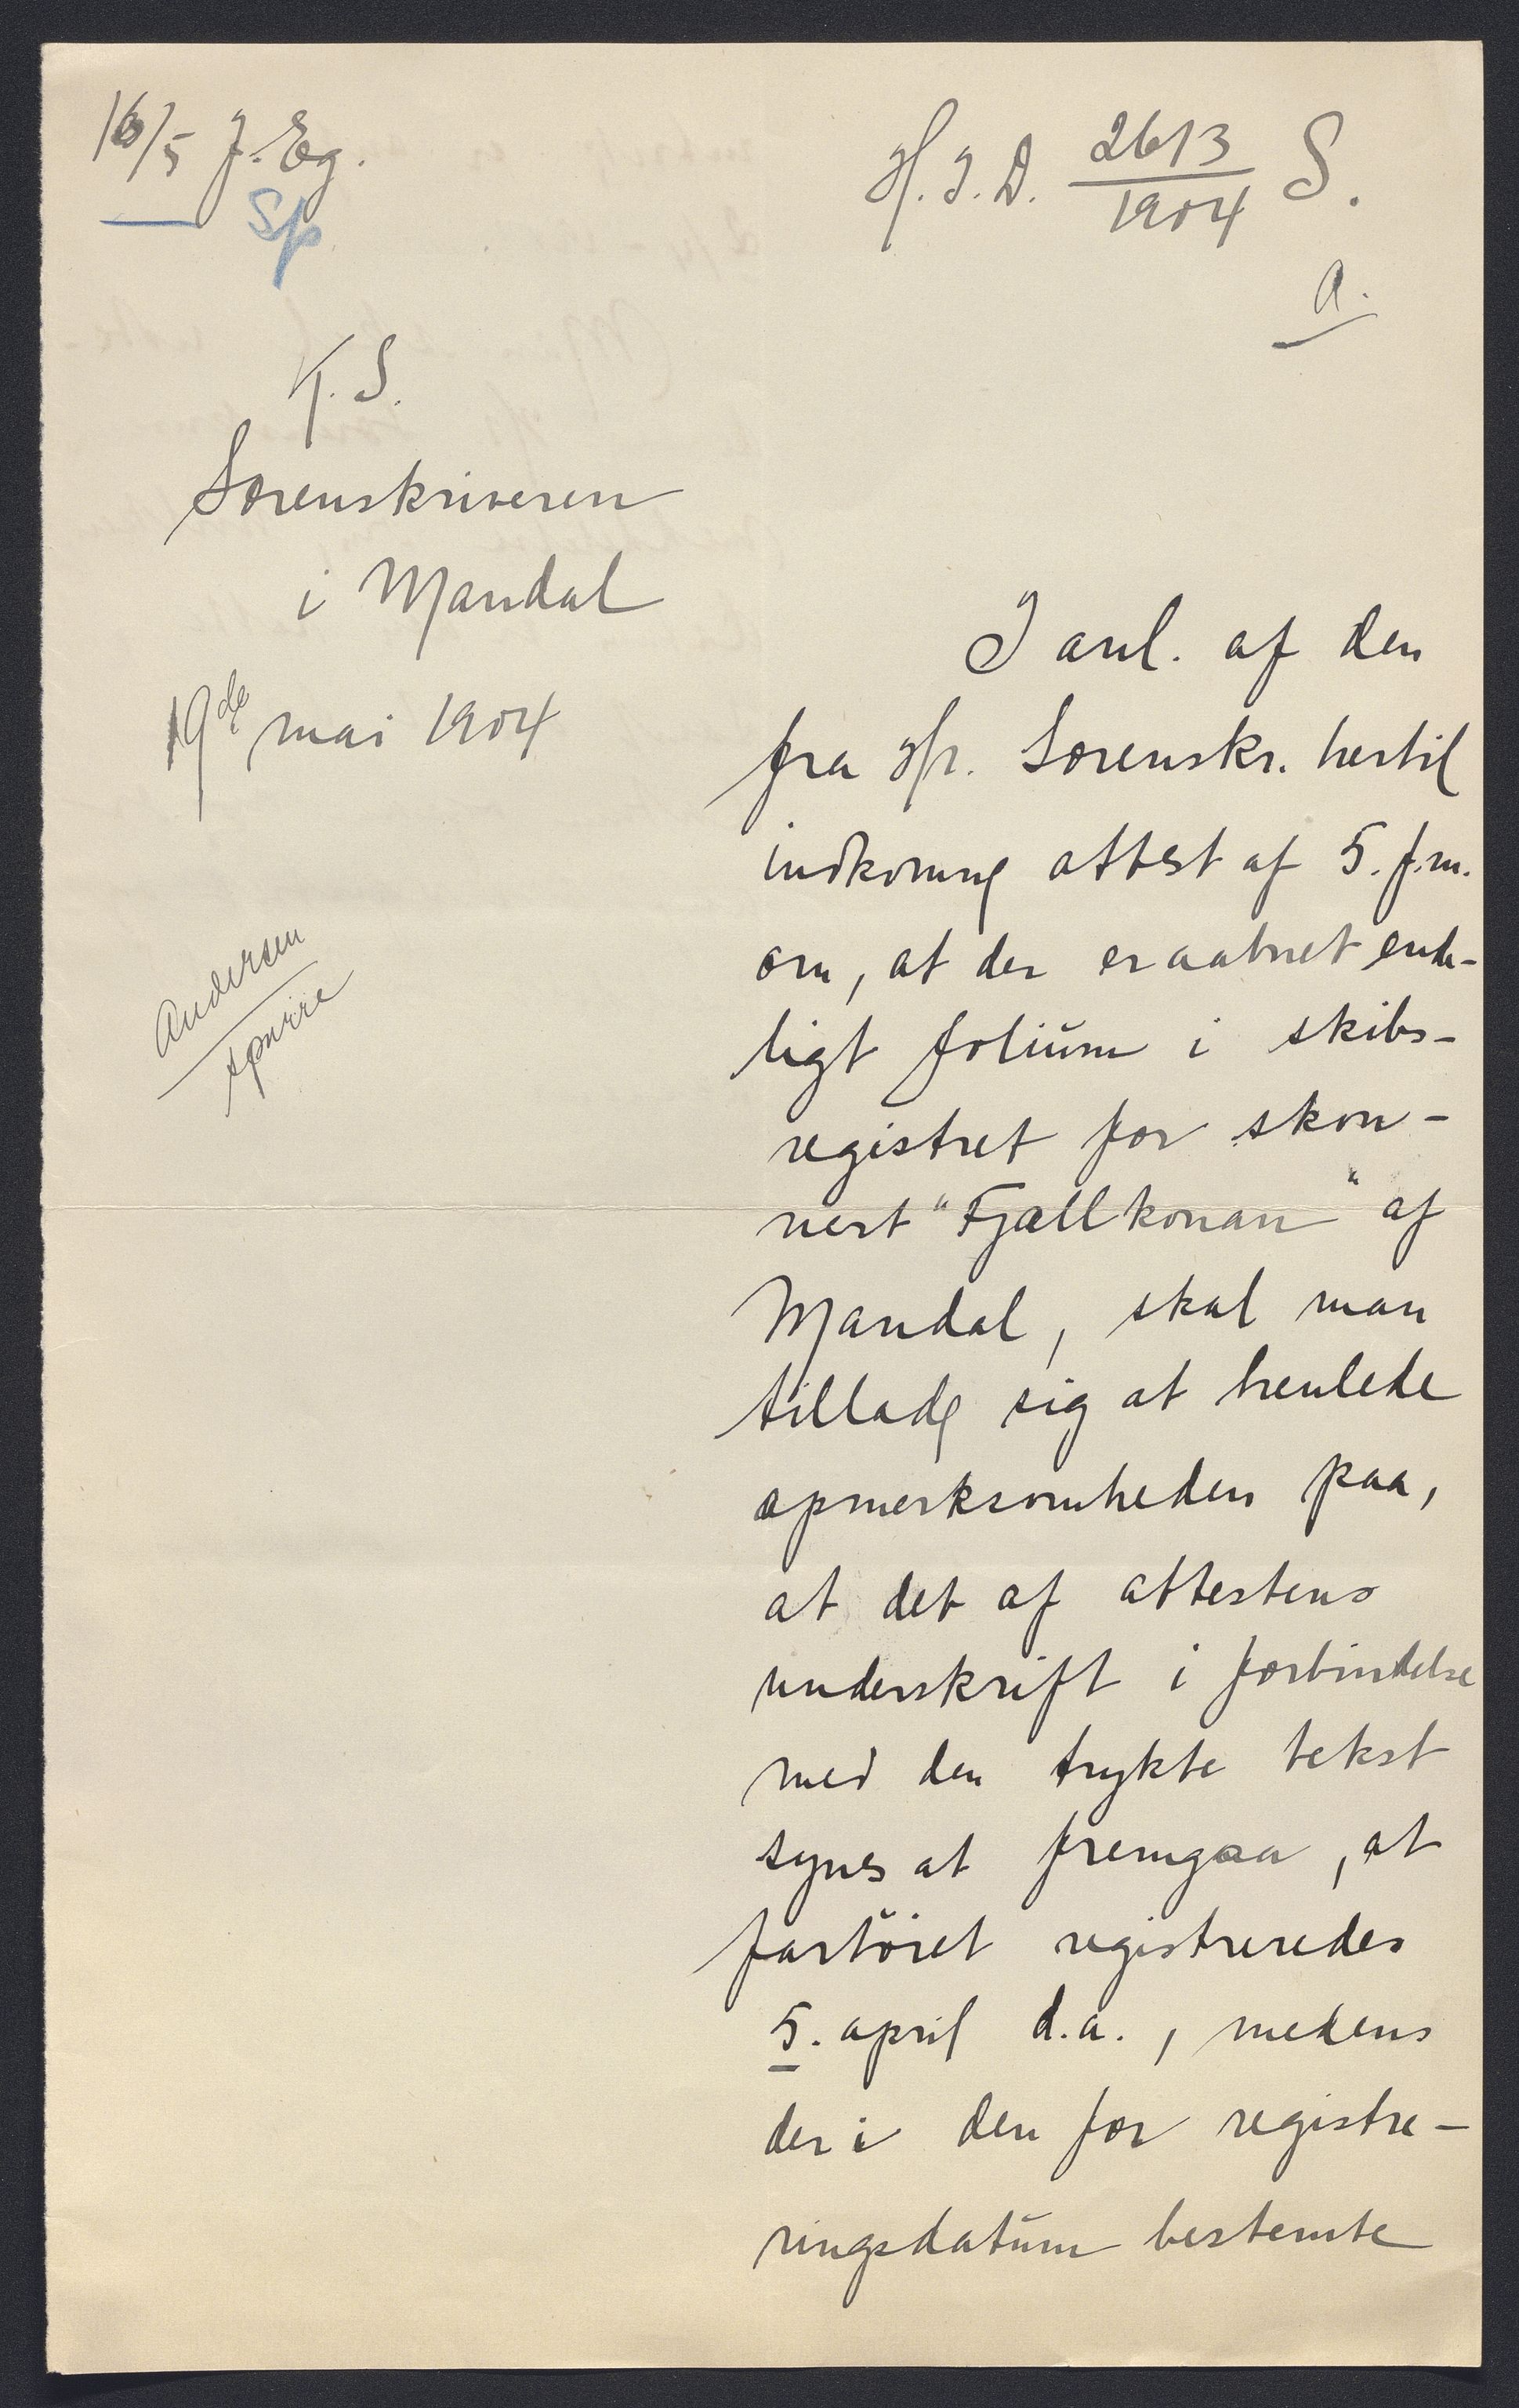 16/5 J. Eg.
Sp
H. I. D. 2613/1904 S.
a.
K. S.
Sorenskriveren
i Mandal
19de mai 1904
Andersen
spurre
I anl. af den
fra Hr. Sorenskr. hertil
indkomne attest af 5. f.m.
om, at der er aabnet ende-
ligt folium i skibs-
registret for skon-
nert "Fjällkonan" af
Mandal, skal man
tillade sig at henlede
opmerksomheden paa,
at det af attestens
underskrift i forbindelse
med den trykte tekst
synes at fremgaa, at
fartöiet registreredes
5. april d.a., medens
der i den for registre-
ringsdatum bestemte